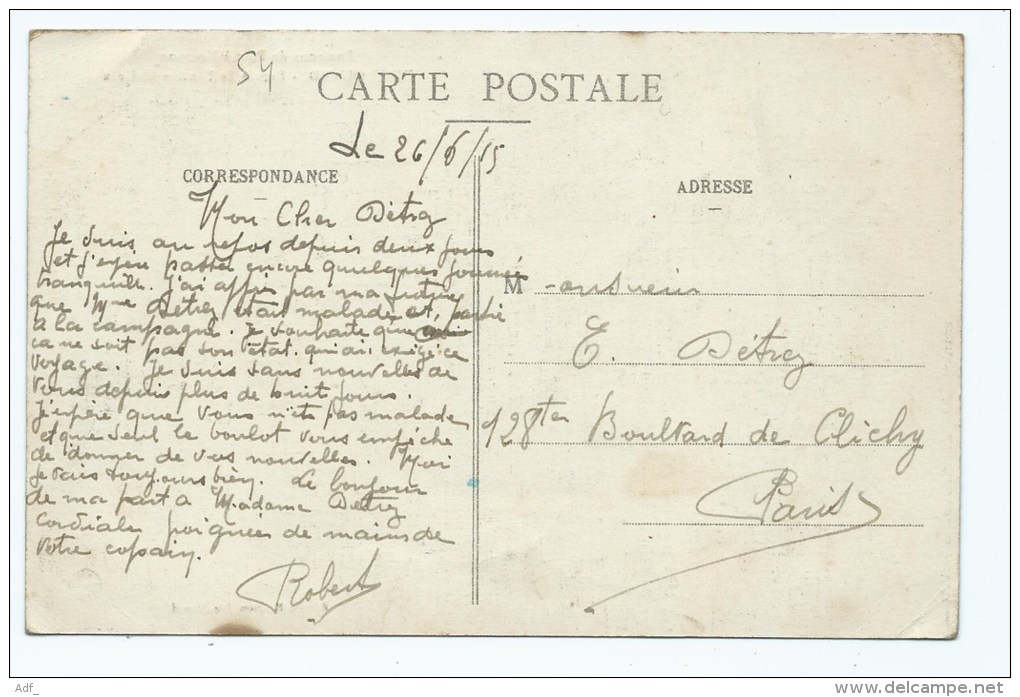 54
CARTE POSTALE
Le 26/6/15
CORRESPONDANCE
ADRESSE
Mon Cher Détrez
Je suis au repos depuis deux jours
et j'espère passer encore quelques journées
tranquille. J'ai appris par ma
que Mme Détrez était malade et, partie
à la campagne. Je souhaite que
ça ne soit pas son état qui ai, exigé ce
voyage. Je suis sans nouvelles de
vous depuis plus de huit jours.
J'espère que vous n'êtes pas malade
et que seul le boulot vous empêche
de donner de vos nouvelles. Moi
je vais toujours bien. Le bonjour
de ma part à Madame Détrez
Cordiales poignées de mains de
votre copain.
Robert
Monsieur
E. Détrez
128ter Boulevard de Clichy
Paris
Adf_
delcampe.net